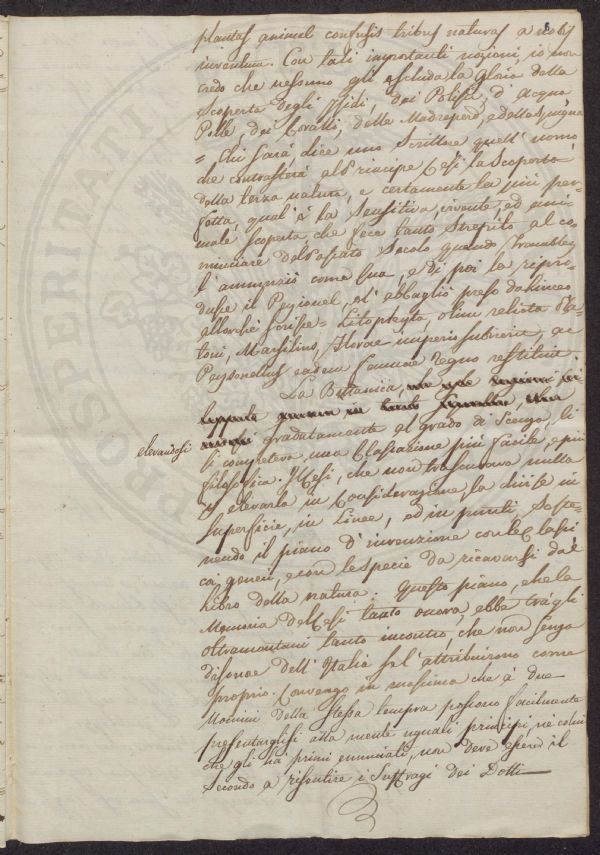 8
plantas animal confusis tribus naturas a nobis
inventum. Con tali importanti nozioni, io non
credo che nessuno gli escluda la Gloria della
Scoperta degli Isidi, dei Polipi, d'acqua
Dolce, dei Coralli, delle Madrepore, e della Spugna
= Chi sarà dice uno Scrittore quell'uomo
che contrasterà al Principe Cesi la Scoperta
della terza natura, e certamente la più per-
fetta, qual'è la Sensitiva, vivente, ed ani-
male scoperta, che fece tanto strepito al co-
minciare del passato Secolo quando Trembley
l'annunziò come sua, e di poi la ripro-
dusse il Peyionel, ed abbaglio prese da Lineo
allorchè scrisse = Litophyta, olim relicta
Marsilius, Florae imperio subiecit, ac
Peyssonellus eadem faunae regno restituit
La Bottanica
elevandosi gradatamente al grado di Scienza, li
si competeva una Classazione più facile, e più
filosofica. Il Cesi, che non trascurava nulla
p elevarla in Considerazione la divise in
Superficie, in Linee, ed in punti, Soste-
nendo il piano d'invenzione con le Classi
coi generi, e con le specie da ricavarsi dal
Libro della natura. Questo piano, che la
Memoria del Cesi tanto onora, ebbe tra gli
oltramontani tanto incontro, che non senza
disonore dell'Italia se l'attribuirono come
proprio. Convengo in massima che a due
Uomini della stessa tempra possono facilmente
presentarglisi alla mente uguali principj, nè colui
che gli ha primi enunciati, non deve essere il
Secondo a riscutire i Suffragi dei Dotti